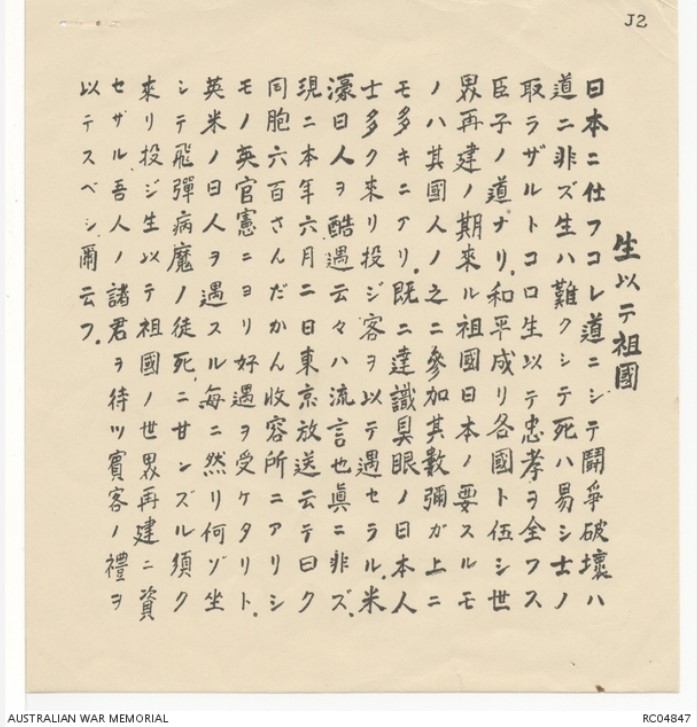 J2
生以テ祖國
日本ニ仕フコレ道ニシテ鬪爭破壞ハ
道ニ非ズ生ハ難クシテ死ハ易シ士ノ
取ラザルトコロ生以テ忠孝ヲ全フス
臣子ノ道ナリ.和平成リ各國ト伍シ世
界再建ノ期來ル祖國日本ノ要スルモ
ノハ其國人ノ之ニ參加其數彌ガ上ニ
モ多キニアリ.既ニ達識具眼ノ日本人
士多ク來リ投ジ客ヲ以テ遇セラル.米
濠日人ヲ酷遇云々ハ流言也眞ニ非ズ.
現ニ本年六月二日東京放送云テ曰ク
同胞六百さんだかん收容所ニアリシ
モノ英官憲ニヨリ好遇ヲ受ケタリト.
英米ノ日人ヲ遇スル每ニ然リ何ゾ坐
シテ飛彈病魔ノ徒死ニ甘ンズル須ク
來リ投ジ生以テ祖國ノ世界再建ニ資
セザル吾人ノ諸君ヲ待ツ賓客ノ禮ヲ
以テスベシ爾云フ.
AUSTRALIAN WAR MEMORIAL
RC04847